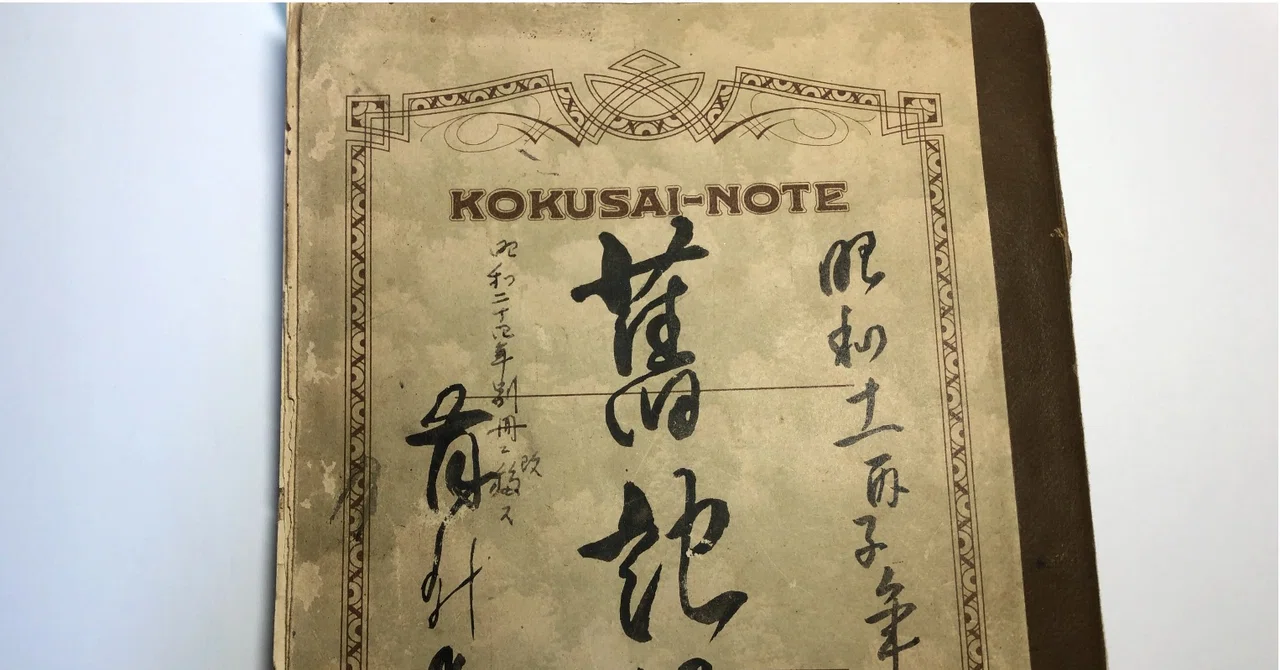 KOKUSAI-NOTE
昭和十一丙子年
舊記
昭和二十四年別冊ニ改移ス